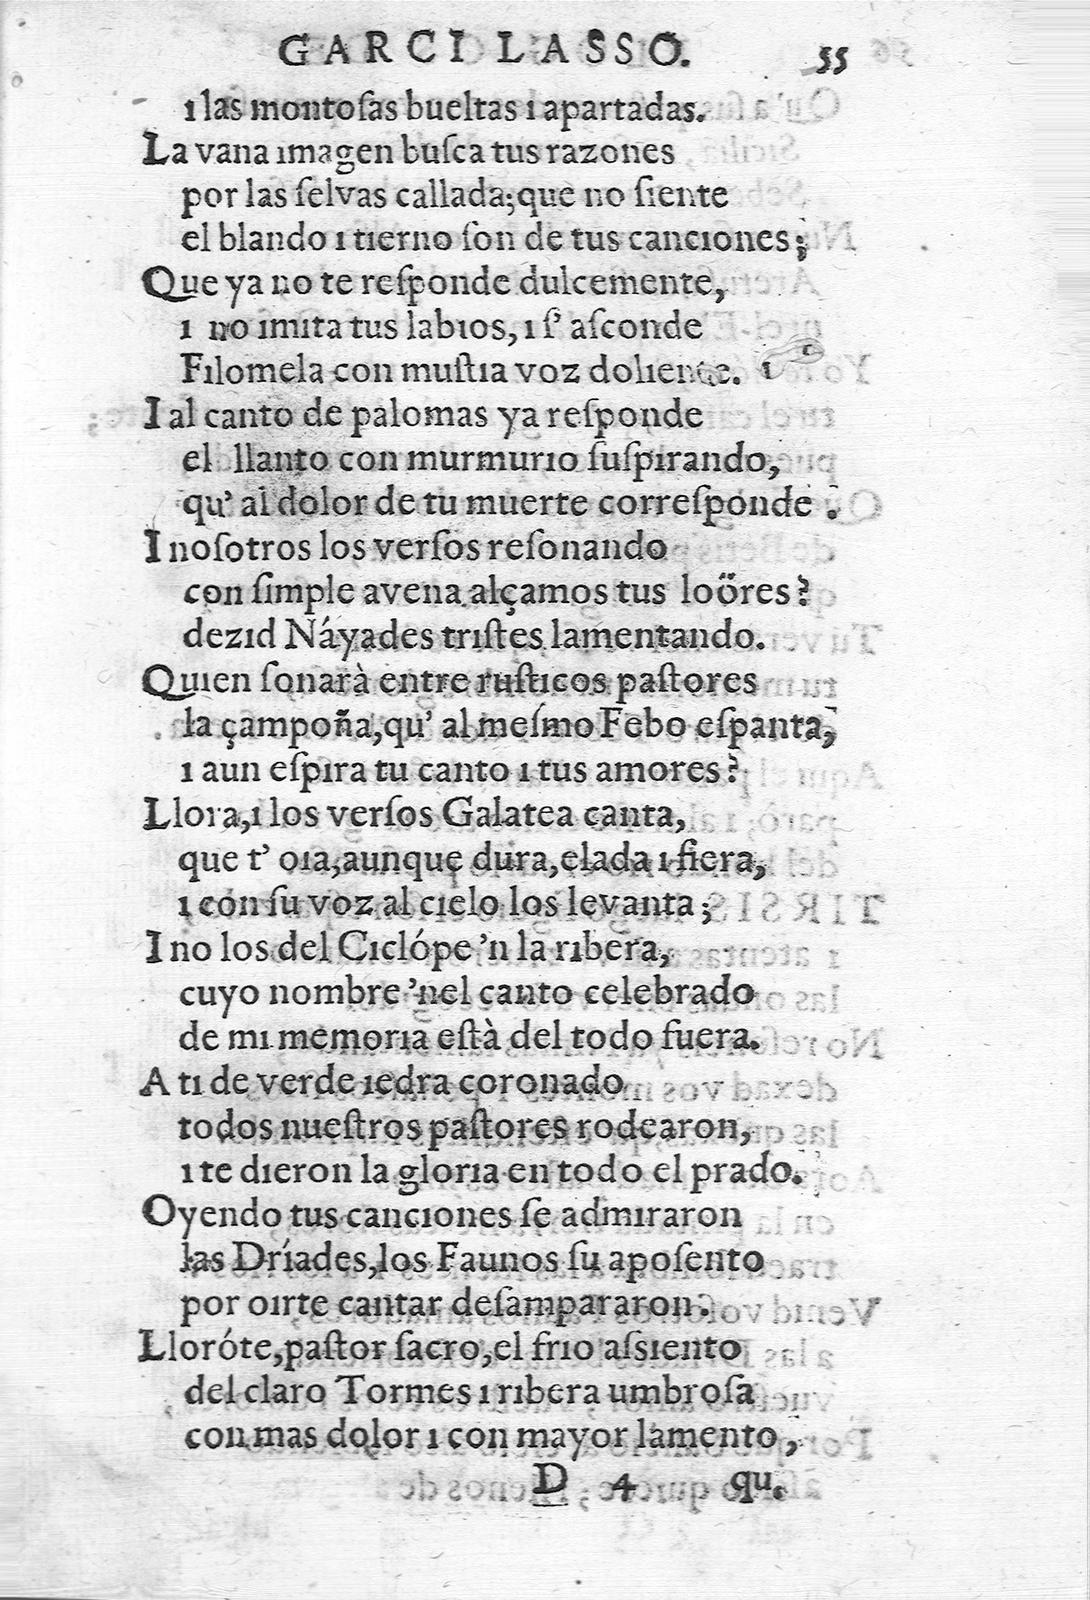 GARCI LASSO. 55
ı las montoſas bueltas ı apartadas.
La vana ımagen buſca tus razones
por las ſelvas callada; que no ſiente
el blando ı tıerno ſòn de tus cancıones;
Que ya no te reſponde dulcemente,
ı no ımıta tus labıos, ı ſ' aſconde
Fılomela con muſtıa voz dolıente. ı
I al canto de palomas ya reſponde
el llanto con murmurıo ſuſpırando,
qu' al dolor de tu muerte correſponde.
I noſotros los verſos reſonando
con ſimple avena alçamos tus loöres?
dezıd Náyades trıſtes lamentando.
Quıen ſonarà entre ruſtıcos paſtores
la çampoña, qu' al meſmo Febo eſpanta,
ı aun eſpıra tu canto ı tus amores?
Llora, ı los verſos Galatea canta,
que t' oıa, aunque dura, elada ı fiera,
ı con ſu voz al cıelo los levanta;
I no los del Cıclópe 'n la rıbera,
cuyo nombre 'nel canto celebrado
de mı memorıa eſtà del todo fuera.
A tı de verde ıedra coronado
todos nueſtros paſtores rodearon,
ı te dıeron la glorıa en todo el prado.
Oyendo tus cancıones ſe admıraron
las Dríades, los Faunos ſu apoſento
por oırte cantar deſampararon.
Lloróte, paſtor ſacro, el frıo aſsıento
del claro Tormes ı rıbera umbroſa
con mas dolor ı con mayor lamento,
D 4 qu.